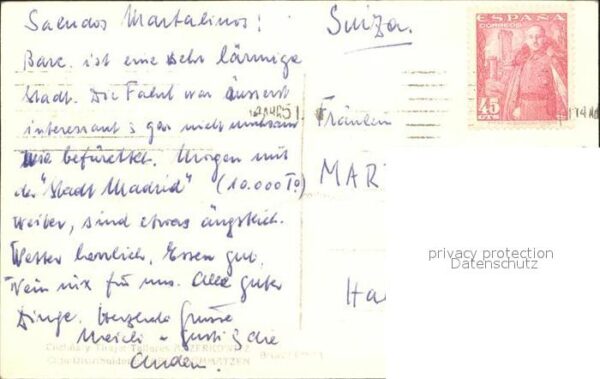 Saludos Martalinos!
Barc. ist eine sehr lärmige
Stadt. Die Fahrt war äusserst
interessant & gar nicht
wie befürchtet. Morgen mit
der "Stadt Madrid" (10.000 To)
weiter, sind etwas ängstlich.
Wetter herrlich, Essen gut,
Wein nix für uns. Alle guter
Dinge. Herzliche Grüsse
& die
Andern!
Suiza.
Fräulein
MAR
Ha
ESPAÑA
CORREOS
45
CTS
privacy protection
Datenschutz